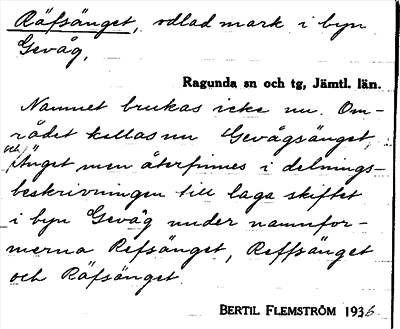 Räfsänget, odlad mark i byn
Gevåg,
Ragunda sn och tg, Jämtl. län.
Namnet brukas icke nu. Om-
rådet kallas nu Gevågsänget
och Änget men återfinnes i delnings-
beskrivningen till laga skiftet
i byn Gevåg under namnfor-
merna Refsänget, Reffsänget
och Räfsänget.
BERTIL FLEMSTRÖM 1936.